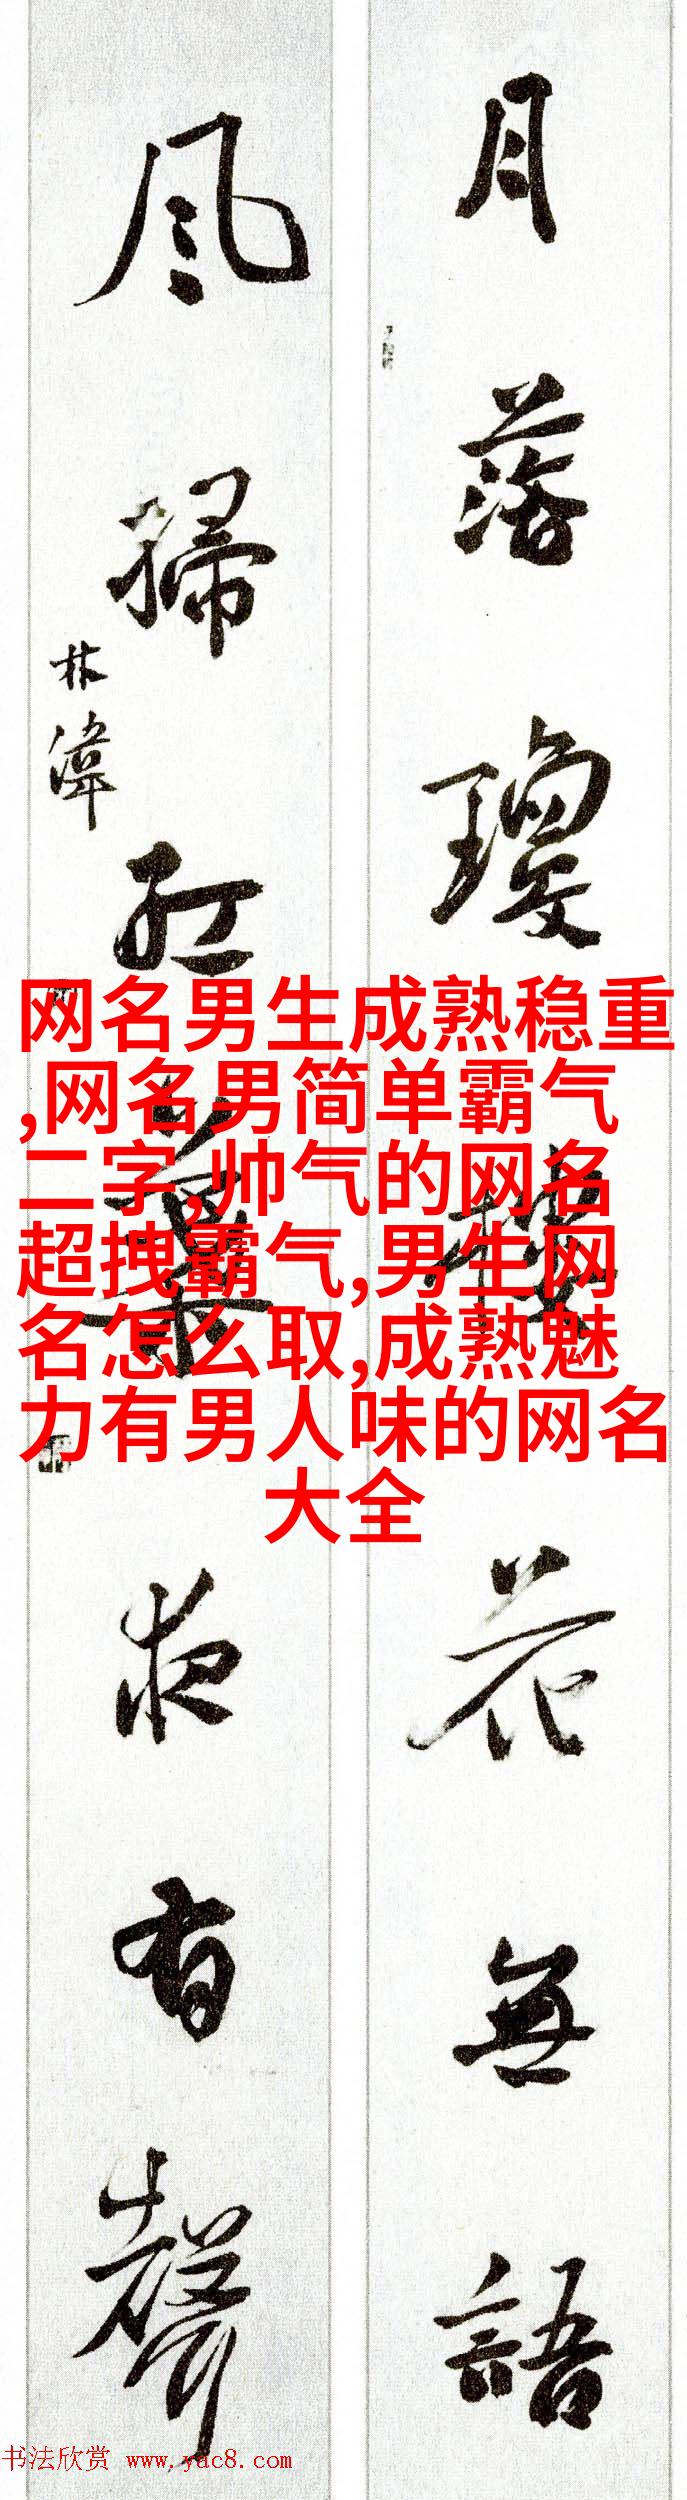 月落瓊樓花無語
風掃紅葉夜有聲
林漳
网名男生成熟稳重
,网名男简单霸气
二字,帅气的网名
超拽霸气,男生网
名怎么取,成熟魅
力有男人味的网名
大全
书法欣赏 www.yac8.com